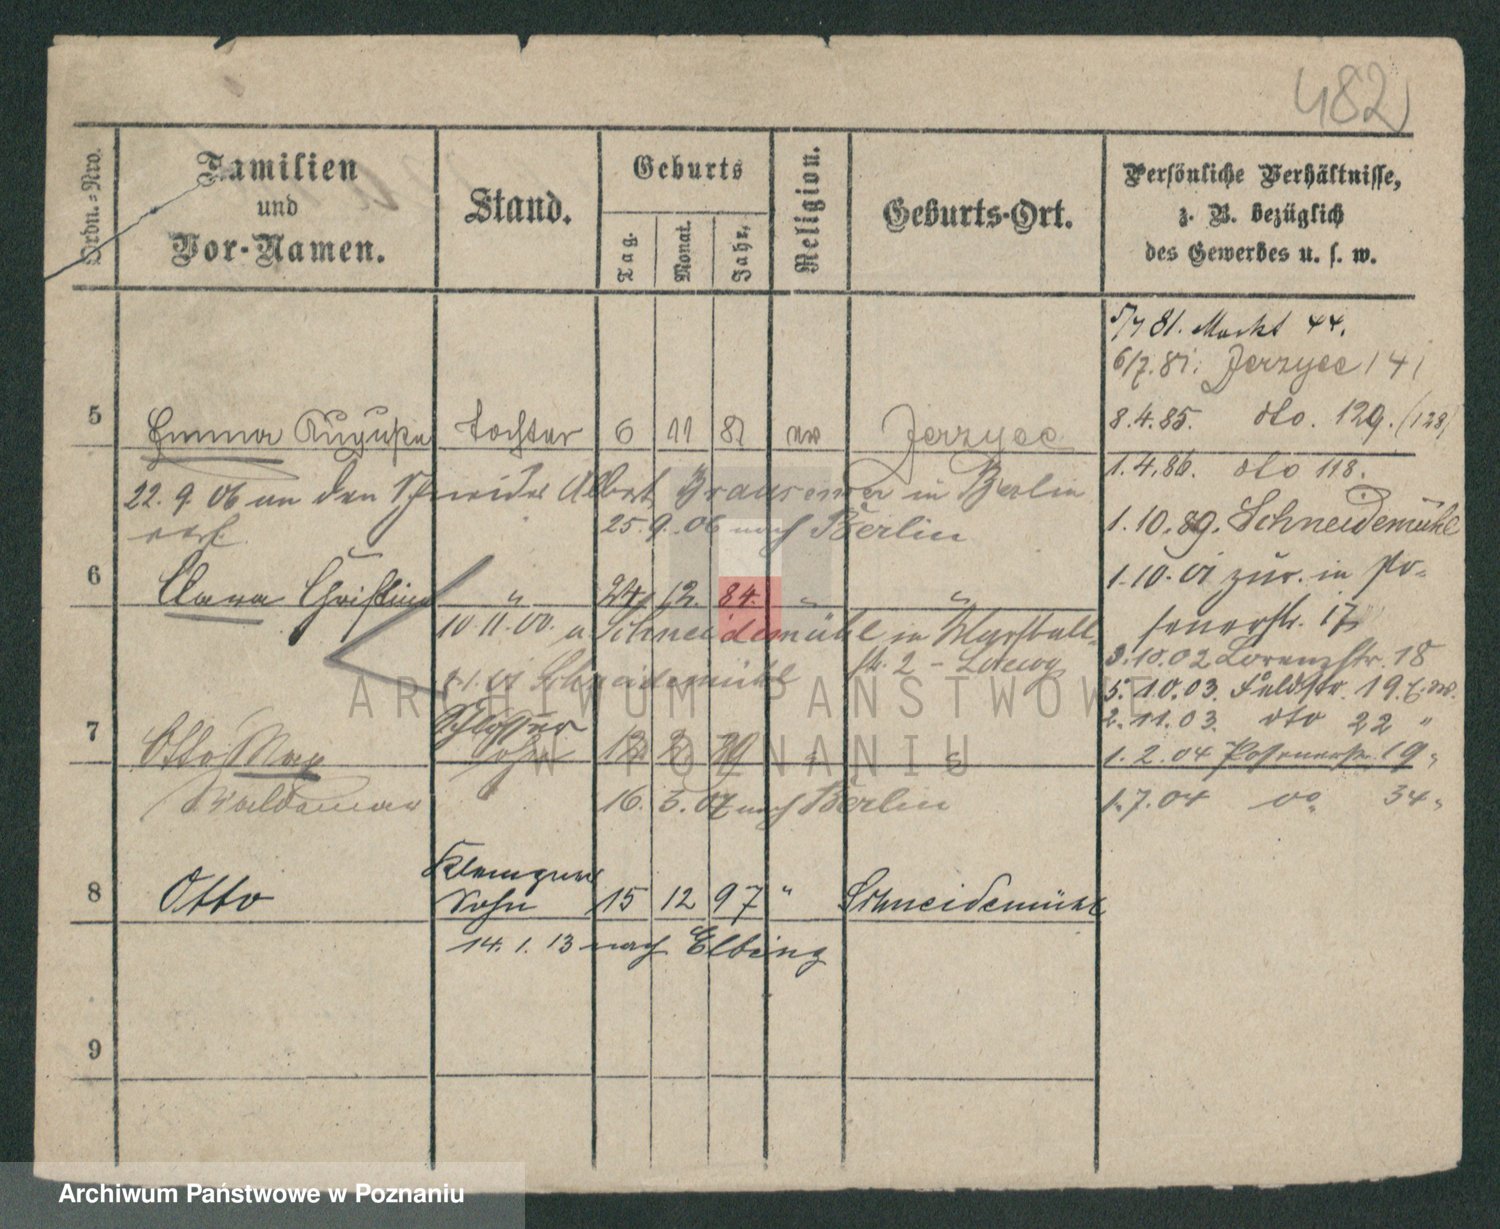 482
Ordn.=Nro.
Familien
und
Vor-Namen.
Stand.
Geburts
Tag.
Monat.
Jahr.
Religion.
Geburts-Ort.
Persönliche Verhältnisse,
z. B. bezüglich
des Gewerbes u. s. w.
5 Emma Auguste Tochter 6 11 81 ev Jerzyce
22. 9. 06 an den Albert in Berlin
verh. 25. 9. 06 nach Berlin
6 Clara Christine " 24 12. 84. " "
10 11. 00. a. Schneidemühl in
str. 2 - Loewy
Schneidemühl
7 Otto Max Schlosser Sohn 12 2 " "
Waldemar 16. 5. 07 nach Berlin
8 Otto Klempner Sohn 15 12 97 " Schneidemühl
14. 1. 13 nach Elbing
9
5/4 81. Markt 44.
6/7. 81. Jerzyce 141
8.4.85. dto. 129. (128)
1.4.86. dto 118.
1.10.89. Schneidemühl
1.10.01 zur. in Po-
senerstr. 17
3.10.02 Lorenzstr. 18
5.10.03. Feldstr. 19
2.11.03. dto 22 "
1.2.04 Posenerstr. 19 "
1.7.04 do 34 "
ARCHIWUM PAŃSTWOWE
W POZNANIU
Archiwum Państwowe w Poznaniu